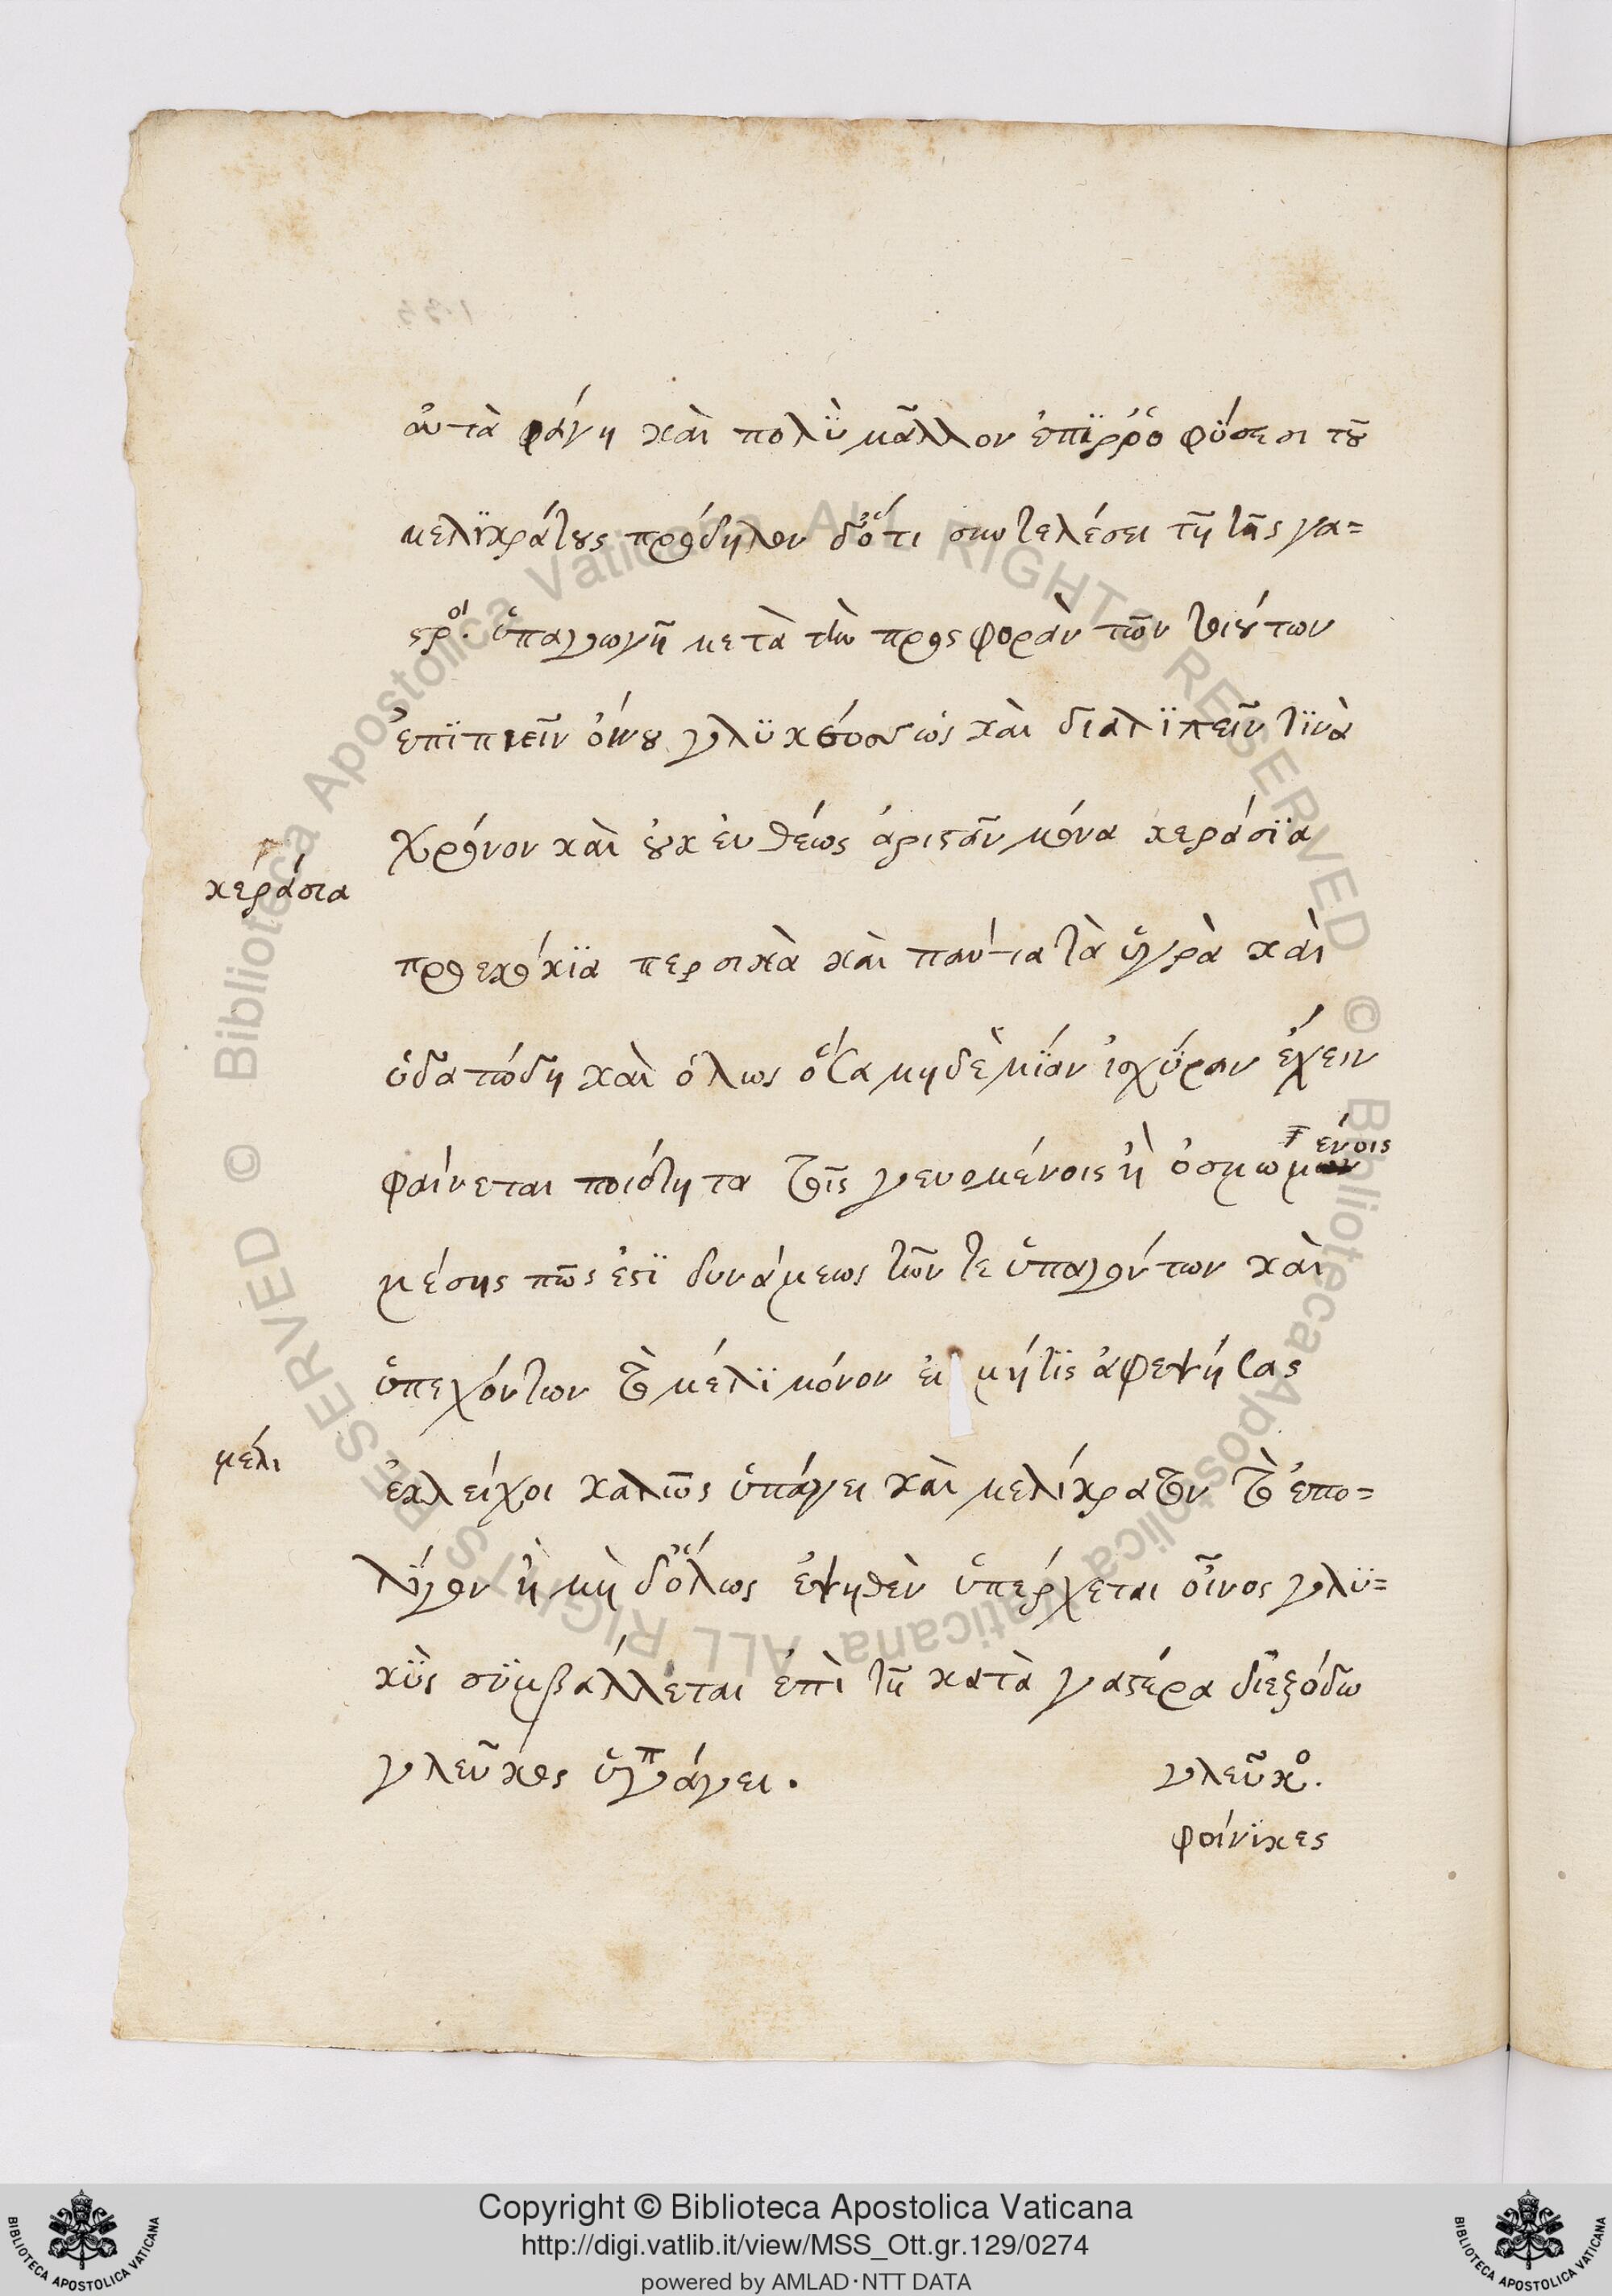 αὐτὰ φάγη καὶ πολῢ μᾶλλον ἐπϊῤῥοφΰσει τοῦ
μελϊκράτους πρόδηλον δ' ὅτι συντελέσει τῆ τῆς γα=
στρὸ. ὑπαγωγῆ μετὰ τὴν προσφορὰν τῶν τοιούτων
ἐπϊπιεῖν οἴνου γλϋκέος καὶ διαλϊπεῖν τϊνὰ
χρόνον καὶ οὐκ εὐθέως ἀριστᾶν μόνα κεράσϊα
κεράσια
πρεκόκϊα περσικὰ καὶ πάντα τὰ ὑγρὰ καὶ
ὑδατώδη καὶ ὅλως ὅσα μηδὲ μΐαν ἰσχΰραν ἔχειν
φαίνεται ποιότητα τοῖς γευομένοις ἢ ὀσμωμένοις
μέσης πῶς ἐστϊ δυνάμεως τῶν τε ὑπαγόντων καὶ
ὑπεχόντων τὸ μέλϊ μόνον εἰ μή τϊς ἀφεψήσας
μέλι
ἐκλείχοι καλῶς ὑπάγει καὶ μελίκρατον τὸ ἐπο=
λΐγον ἢ μὴ δ' ὅλως ἑψηθὲν ὑπέρχεται οἶνος γλϋ=
κῢς σϋμβάλλεται ἐπὶ τῆ κατὰ γαστέρα διεξόδω
γλεῦκος ὑπάγει.
γλεῦκο.
φοίνϊκες
Copyright © Biblioteca Apostolica Vaticana
http://digi.vatlib.it/view/MSS_Ott.gr.129/0274
powered by AMLAD·NTT DATA
© Biblioteca Apostolica Vaticana ALL RIGHTS RESERVED
© Biblioteca Apostolica Vaticana ALL RIGHTS RESERVED
BIBLIOTECA APOSTOLICA VATICANA
BIBLIOTECA APOSTOLICA VATICANA